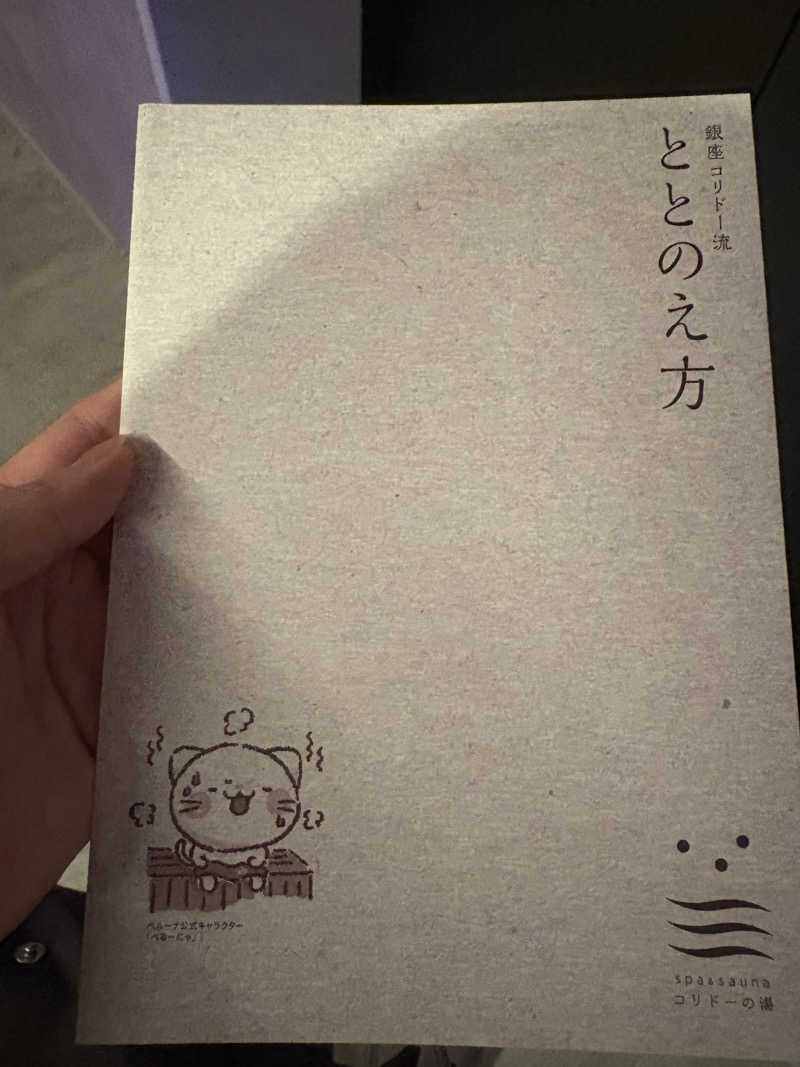 銀座コリドー流
ととのえ方
ベルーナ公式キャラクター
「べるーにゃ」
spa&sauna
コリドーの湯